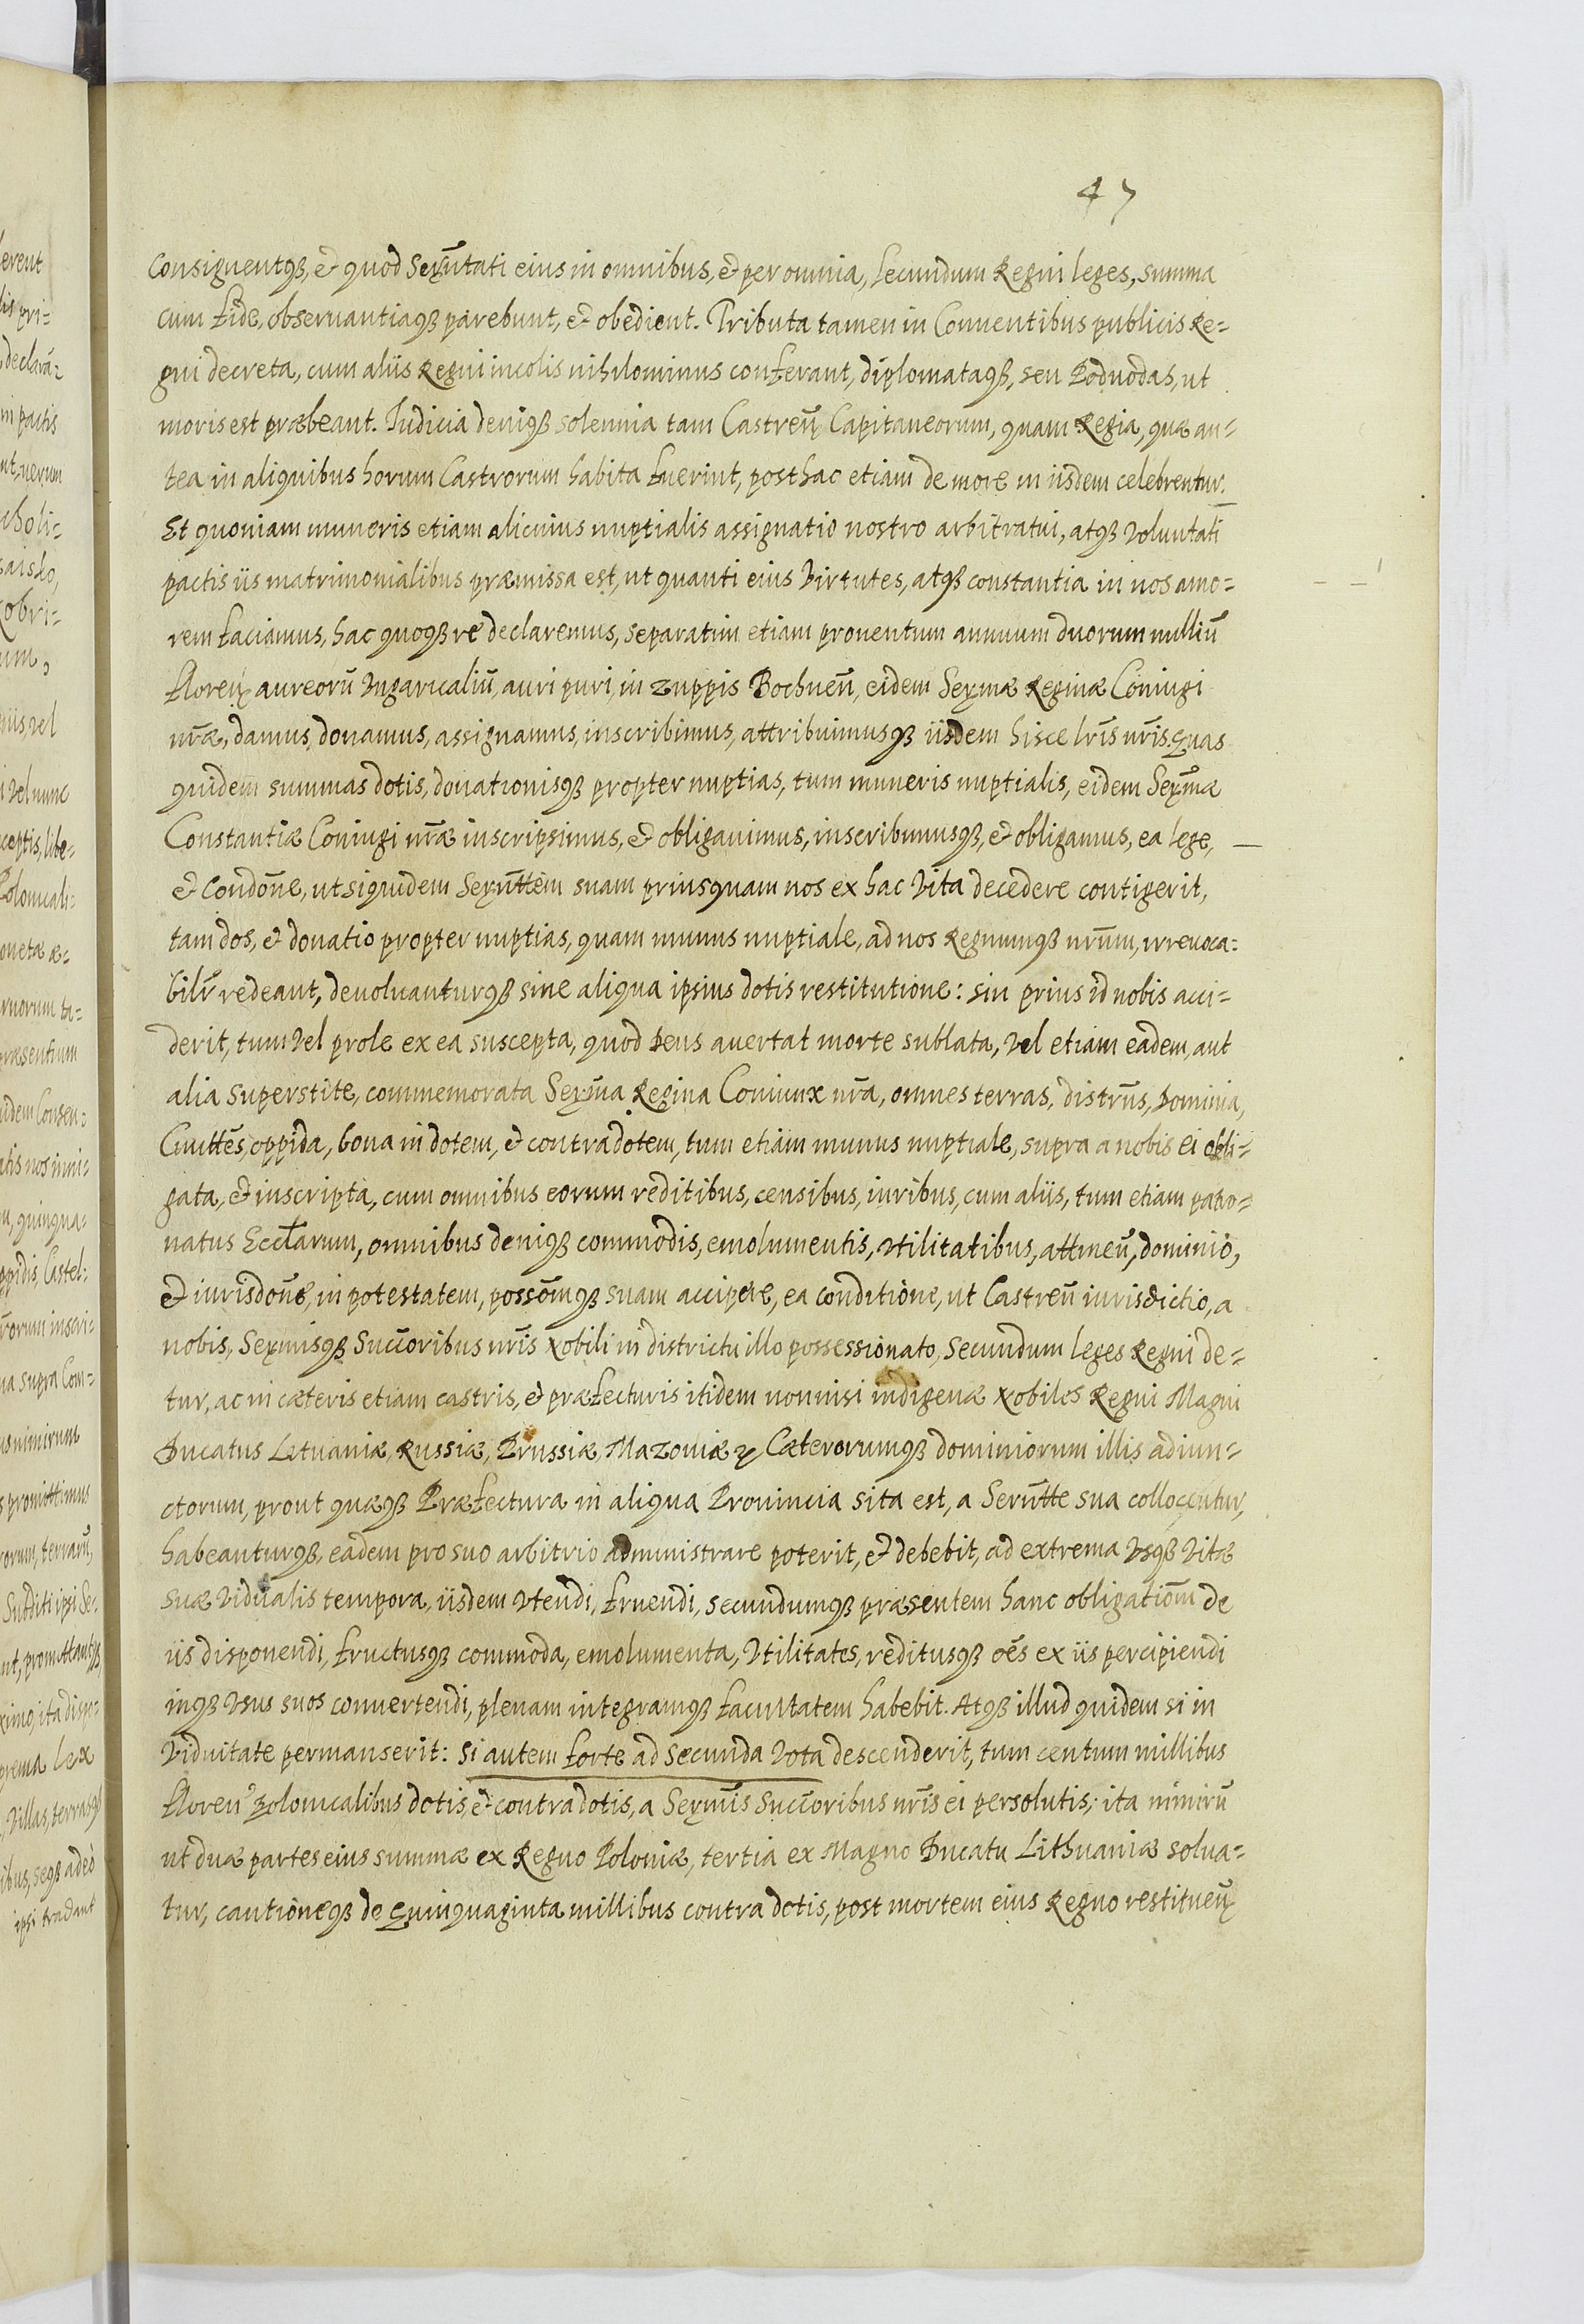 47
consignentqꝫ, et quod Serẽntati eius in omnibus, et per omnia, secundum Regni leges, summa
cum fide, obseruantiaqꝫ parebunt, et obedient. Tributa tamen in Conuentibus publicis Re=
gni decreta, cum aliis Regni incolis nihilominus conferant, diplomataqꝫ, seu Podvodas, ut
moris est præbeant. Iudicia deniqꝫ solennia tam Castreñ Capitaneorum, quam Regia, quæ an=
tea in aliquibus horum Castrorum habita fuerint, posthac etiam de more in iisdem celebrentur.
Et quoniam muneris etiam alicuius nuptialis assignatio nostro arbitratui, atqꝫ voluntati
pactis iis matrimonialibus præmissa est, ut quanti eius Virtutes, atqꝫ constantia in nos amo=
rem faciamus, hac quoqꝫ re declaremus, separatim etiam prouentum annuum duorum milliũ
floreñ aureorũ Vngaricaliũ, auri puri, in zuppis Bochneñ, eidem Serr̃næ Reginæ Coniugi
nr̃æ, damus, donamus, assignamus, inscribimus, attribuimusqꝫ iisdem hisce lr̃is nr̃is. Quas
quidem summas dotis, donationisqꝫ propter nuptias, tum muneris nuptialis, eidem Serr̃mæ
Constantiæ Coniugi nr̃æ inscripsimus, et obligauimus, inscribimusqꝫ, et obligamus, ea lege,
et condõne, ut siquidem Serñttem suam priusquam nos ex hac Vita decedere contigerit,
tam dos, et donatio propter nuptias, quam munus nuptiale, ad nos Regnumqꝫ nr̃um, irreuoca=
bilr̃ redeant, deuoluanturqꝫ sine aliqua ipsius dotis restitutione: sin prius id nobis acci=
derit, tum vel prole ex ea suscepta, quod Deus auertat morte sublata, vel etiam eadem, aut
alia superstite, commemorata Serr̃ma Regina Coniunx nr̃a, omnes terras, distrus̃, Dominia,
Ciuittẽs, oppida, bona in dotem, et contradotem, tum etiam munus nuptiale, supra a nobis ei obli=
gata, et inscripta, cum omnibus eorum reditibus, censibus, iuribus, cum aliis, tum etiam patro=
natus Eccłarum, omnibus deniqꝫ commodis, emolumentis, vtilitatibus, attineñ, dominio,
et iurisdõne, in potestatem, possõmqꝫ suam accipere, ea conditione, ut Castreñ iurisdictio, a
nobis, Serr̃misqꝫ Succ̃oribus nr̃is Nobili in districtu illo possessionato, secundum leges Regni de=
tur, ac in cæteris etiam castris, et præfecturis itidem nonnisi indigenæ Nobiles Regni Magni
Ducatus Lituaniæ, Russiæ, Prussiæ, Mazouiæ Cæterorumqꝫ dominiorum illis adiun=
ctorum, prout quæqꝫ Præfectura in aliqua Prouincia sita est, a Serñtte sua collocentur,
habeanturqꝫ, eadem pro suo arbitrio administrare poterit, et debebit, ad extrema vsqꝫ vitæ
suæ vidualis tempora, iisdem vtendi, fruendi, secundumqꝫ præsentem hanc obligatiõm de
iis disponendi, fructusqꝫ commoda, emolumenta, vtilitates, reditusqꝫ oẽs ex iis percipiendi
inqꝫ vsus suos conuertendi, plenam integramqꝫ facultatem habebit. Atqꝫ illud quidem si in
Viduitate permanserit: si autem forte ad secunda vota descenderit, tum centum millibus
floreñ Polonicalibus dotis, et contradotis, a Serr̃mis Succ̃oribus nr̃is ei persolutis; ita nimirũ
ut duæ partes eius summæ ex Regno Poloniæ, tertia ex Magno Ducatu Lithuaniæ solua=
tur, cautioneqꝫ de Quinquaginta millibus contra dotis, post mortem eius Regno restitueñ